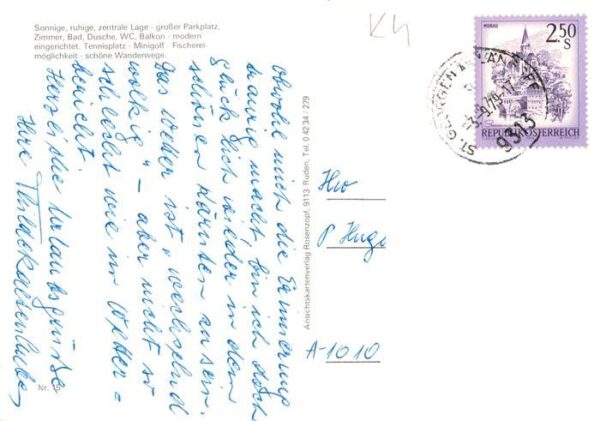 Sonnige, ruhige, zentrale Lage · großer Parkplatz,
Zimmer, Bad, Dusche, WC, Balkon · modern
eingerichtet. Tennisplatz · Minigolf · Fischerei-
möglichkeit · schöne Wanderwege.
Obwohl mich die Erinnerung
traurig macht, bin ich doch
glücklich wieder in dem
schönen Kärnten zu sein.
Das Wetter ist „wechselnd
wolkig" – aber nicht so
schlecht wie im Wetter-
bericht.
Herzliche Urlaubsgrüße
Ihre
Nr.
Ansichtskartenverlag Rosenzopf, 9113 Ruden, Tel. 0 42 34 / 279
K4
MURAU
2.50
S
REPUBLIK ÖSTERREICH
ST. GEORGEN AM LÄNGSEE
9313
P. Hugo
A-1010